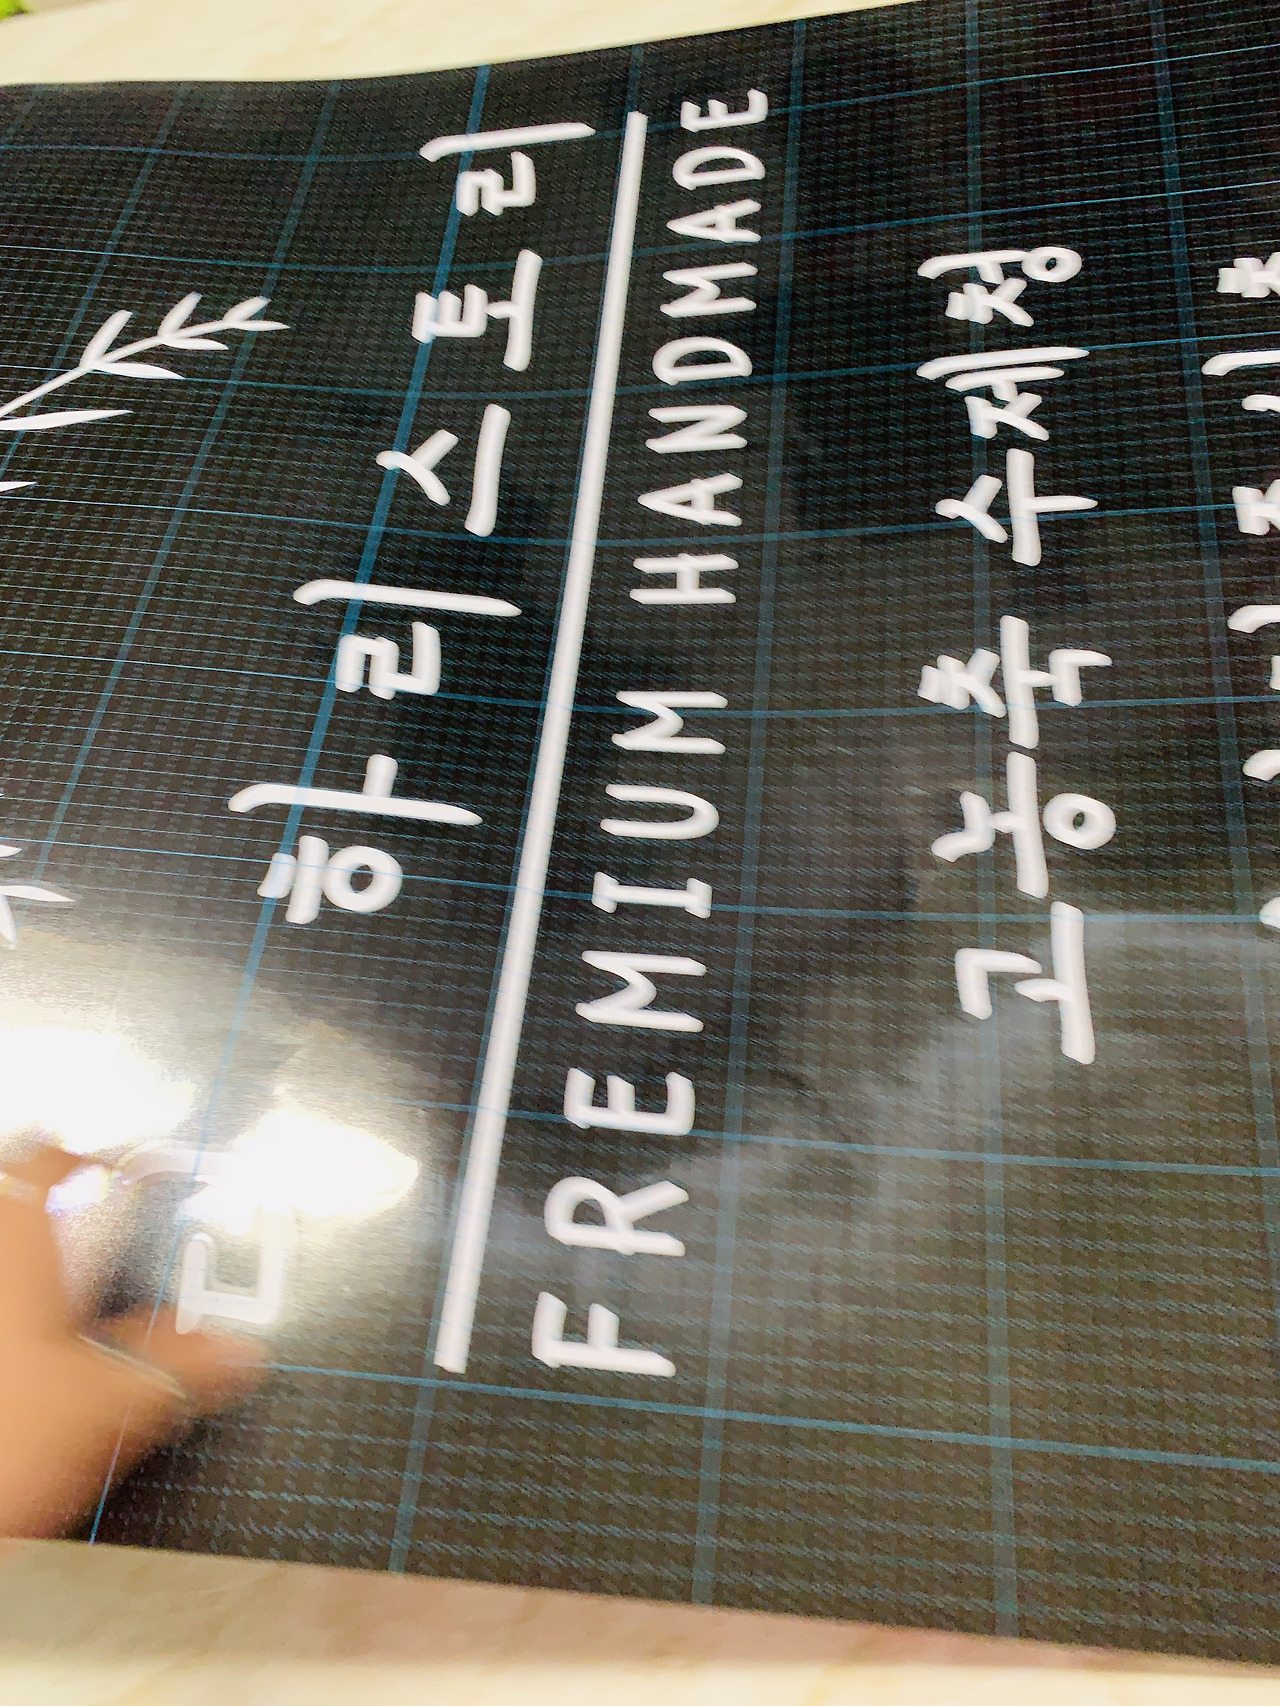 하리스토리
FREMIUM HANDMADE
고농축 수제청